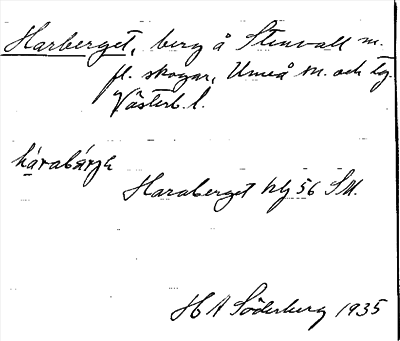 Harberget, berg å Stenvall m.
fl. skogar, Umeå m. och tg.
Västerb. l.
hárabárjɛ
Haraberget blj 56 SM.
H A Söderberg 1935